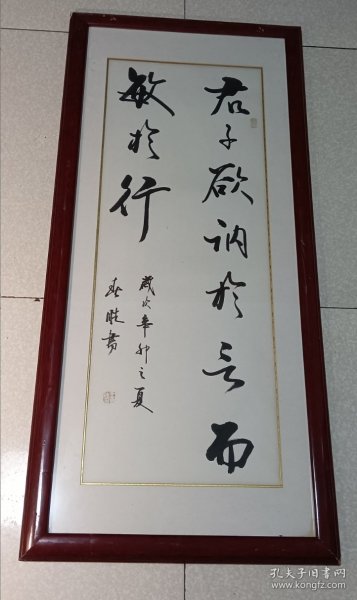 君子欲讷於言而
敏於行
歲次辛卯之夏
春胜書
孔夫子旧书网
www.kongfz.com